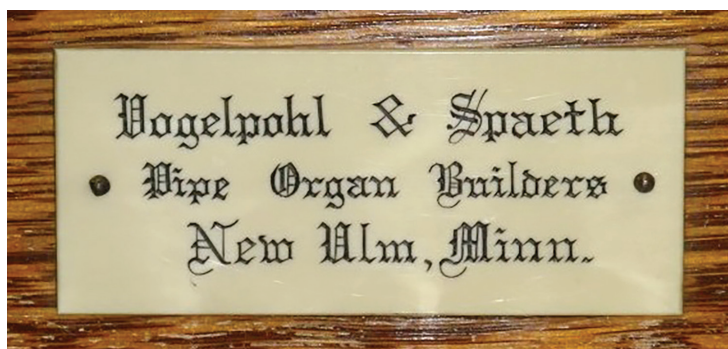 Vogelpohl & Spaeth
Pipe Organ Builders
New Ulm, Minn.